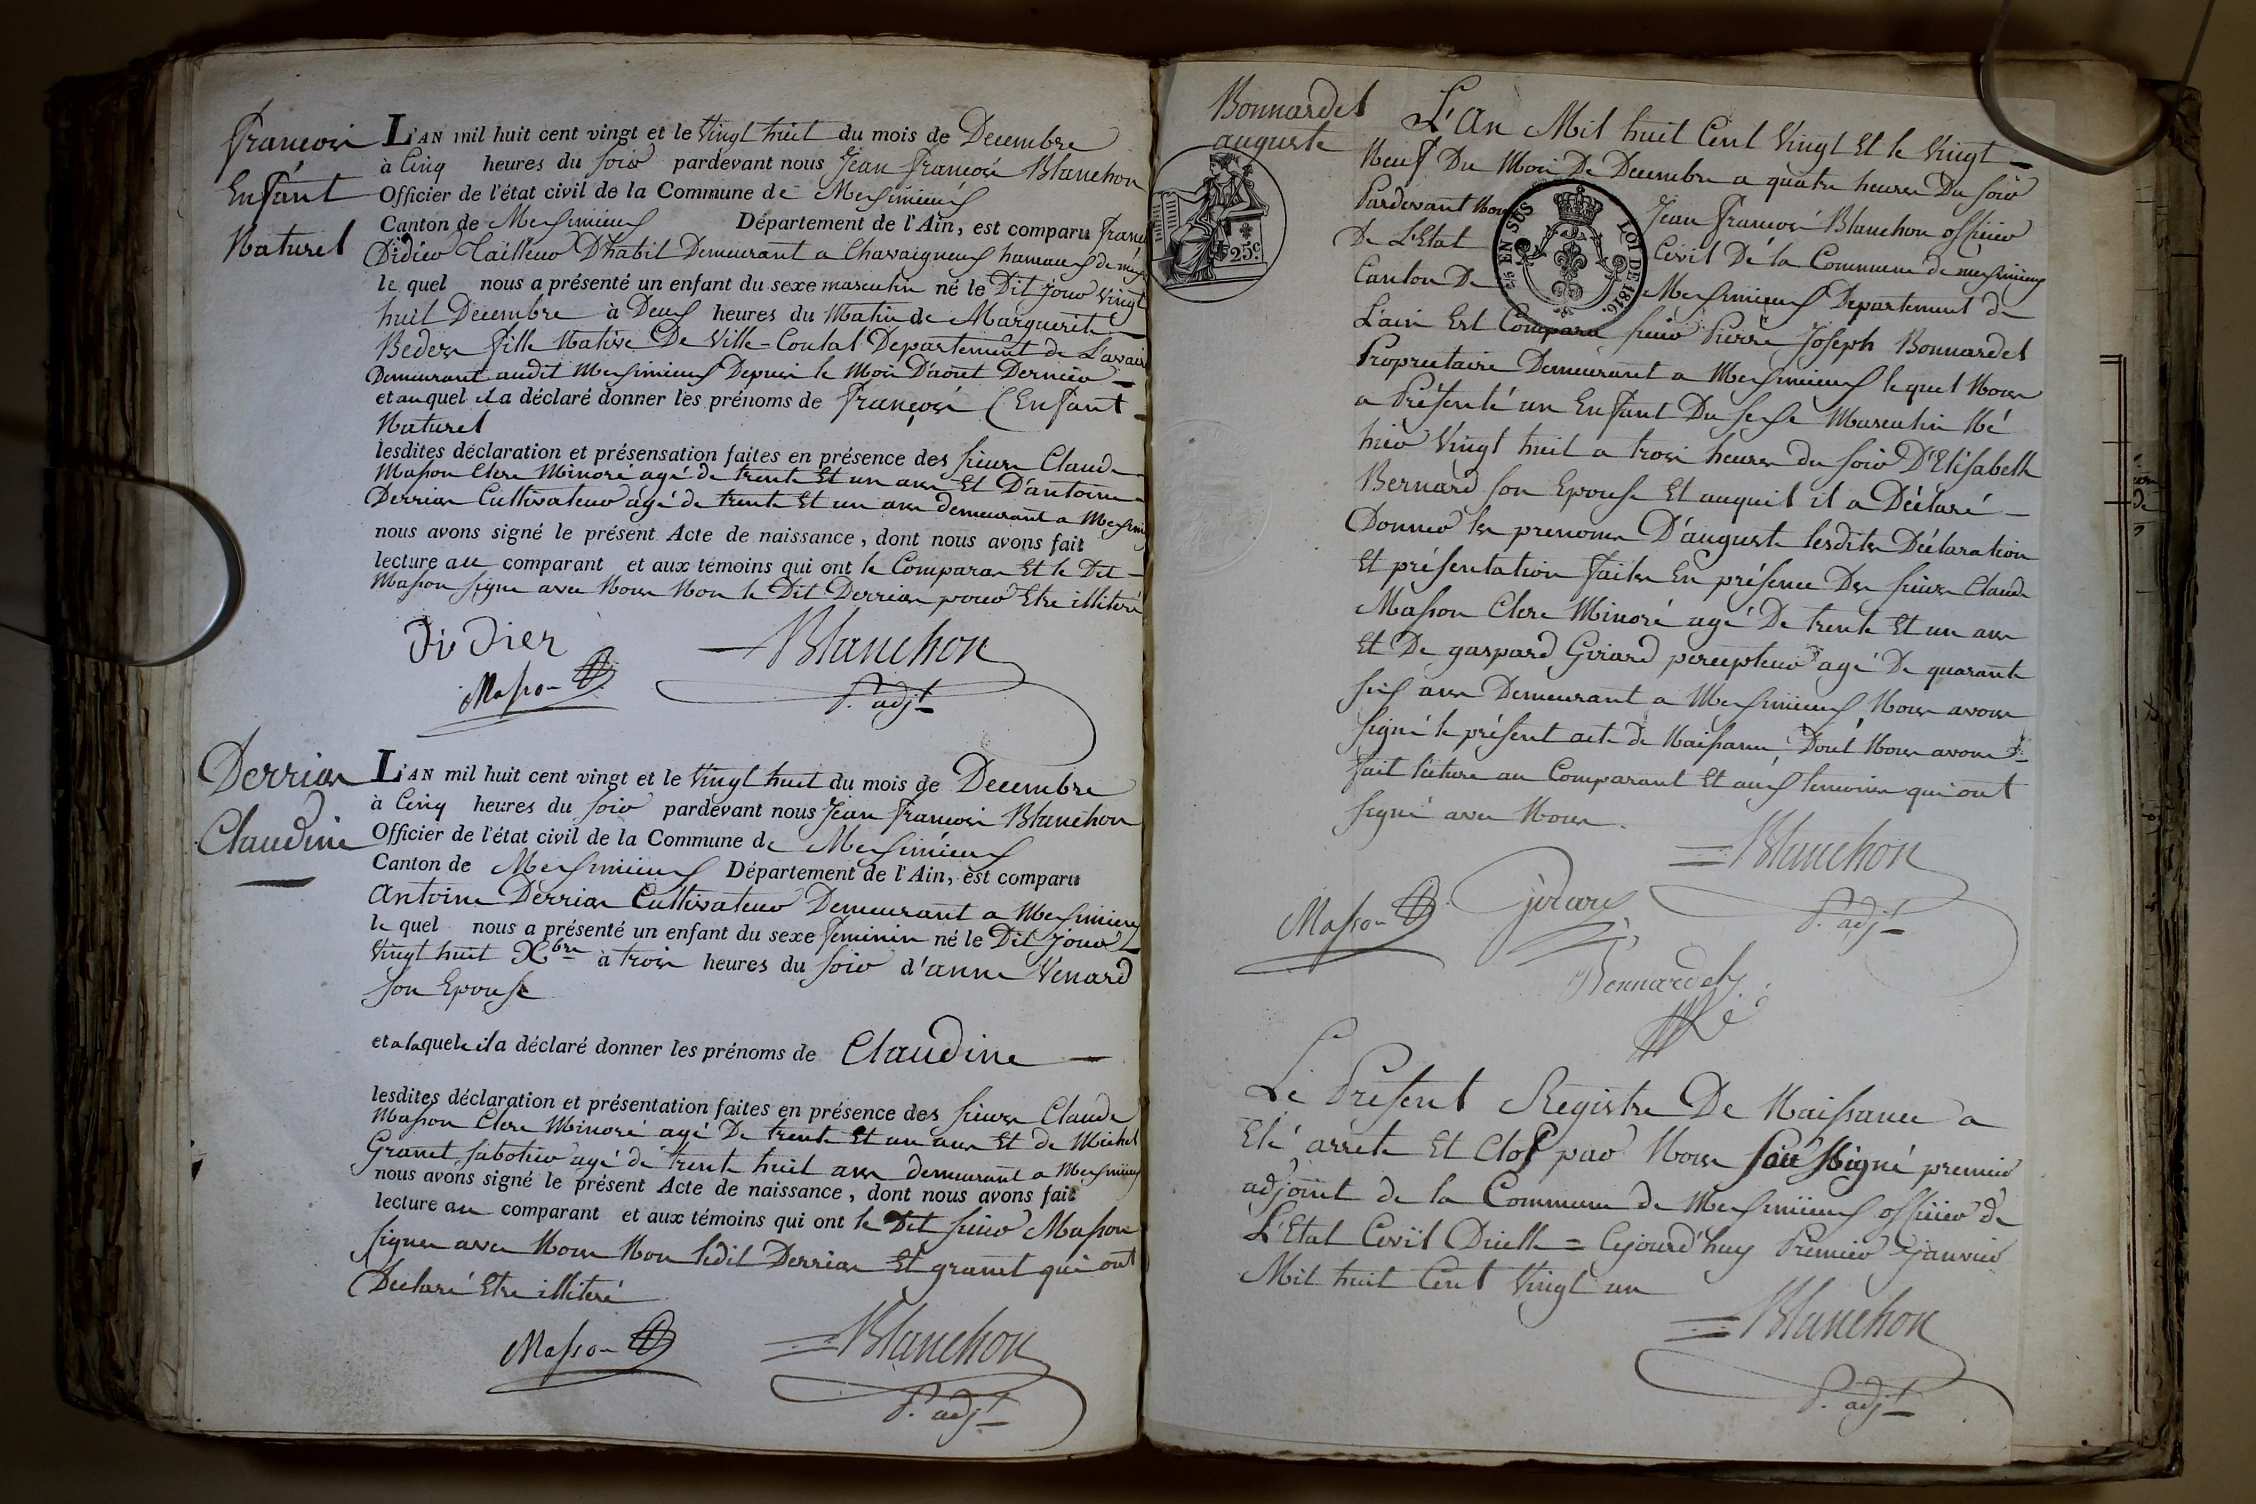 François
Enfant
Naturel
L'AN mil huit cent vingt et le Vingt huit du mois de Decembre
à Cinq heures du soir pardevant nous Jean François Blanchon
Officier de l'état civil de la Commune de Meximieux
Canton de Meximieux Département de l'Ain, est comparu
Didier Tailleur D'habit Demeurant a Chavaigneux hameaux de
le quel nous a présenté un enfant du sexe masculin né le Dit jour Vingt
huit Decembre à Deux heures du Matin de Marguerite
Beder fille Native De Ville-Contal Departement de
Demeurant audit Meximieux Depuis le Mois D'aout Dernier
et auquel il a déclaré donner les prénoms de François (Enfant
Naturel
lesdites déclaration et présensation faites en présence des sieurs Claude
Masson Clerc Minoré agé de trente Et un ans Et D'antoine
Derrias Cultivateur agé de trente Et un ans demeurant a
nous avons signé le présent Acte de naissance, dont nous avons fait
lecture au comparant et aux témoins qui ont le Comparan Et le Dit
Masson signe avec Nous Non le Dit Derrias pour Etre illiteré
Didier
Blanchon
Masson
P. adjt
Derrias
Claudine
L'AN mil huit cent vingt et le Vingt huit du mois de Decembre
à Cinq heures du soir pardevant nous Jean François Blanchon
Officier de l'état civil de la Commune de Meximieux
Canton de Meximieux Département de l'Ain, est comparu
antoine Derrias Cultivateur Demeurant a Meximieux
le quel nous a présenté un enfant du sexe feminin né le Dit jour
Vingt huit Xbre à trois heures du soir d'anne Venard
son Epouse
et a laquele il a déclaré donner les prénoms de Claudine
lesdites déclaration et présentation faites en présence des sieurs Claude
Masson Clerc Minoré agé De trente Et un ans Et de Michel
Granet sabotier agé de trente huit ans demeurant a Meximieux
nous avons signé le présent Acte de naissance, dont nous avons fait
lecture au comparant et aux témoins qui ont le Dit sieur Masson
signer avec Nous Non ledit Derrias Et granet qui ont
Declaré Etre illiteré
Masson
Blanchon
P. adjt
Bonnardel
auguste
25c.
EN SUS LOI DE 1816.
L'An Mil huit Cent Vingt Et le Vingt
Neuf Du Mois De Decembre a quatre heures Du soir
Pardevant Nous Jean François Blanchon officier
De L'Etat Civil De la Commune de meximieux
Canton De Meximieux Departement de
L'ain Est Comparu sieur Pierre Joseph Bonnardel
Proprietaire Demeurant a Meximieux lequel Nous
a Présenté un Enfant Du sexe Masculin Né
hier Vingt huit a trois heures du soir D'Elisabeth
Bernard son Epouse Et auquel il a Déclaré
Donner les prenoms D'auguste lesdites Déclaration
Et présentation faites En présence Des sieurs Claude
Masson Clerc Minoré agé De trente Et un ans
Et De gaspard Girard percepteur agé De quarante
six ans Demeurant a Meximieux Nous avons
signé le présent acte de Naissance, Dont Nous avons
fait lecture au Comparant Et aux temoins qui ont
signé avec Nous.
Blanchon
Masson
Girard
P. adjt
Bonnardel
Le Présent Registre De Naissance a
Eté arrete Et Clos par Nous soussigné premier
adjoint de la Commune de Meximieux officier de
L'Etat Civil D'icelle = Cejourd'huy Premier janvier
Mil huit Cent Vingt un
Blanchon
P. adjt